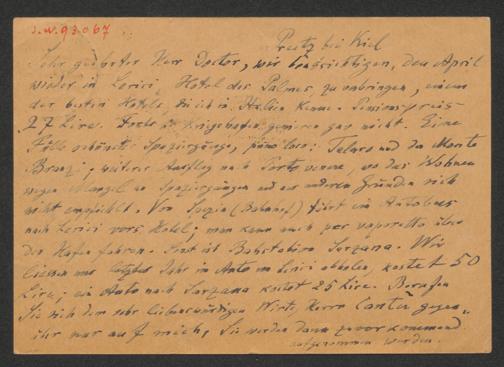 J.N. 93.067
Preetz bei Kiel
Sehr geehrter Herr Doctor, wir beabsichtigen, den April
wieder in Lerici, Hotel des Palmes, zu verbringen, einem
der besten Hotels, die ich in Italien kenne. Pensionspreis
27 Lire. Forts u. Kriegshafen genieren gar nicht. Eine
Fülle schönster Spaziergänge, Telaro und da Monte
weiterer Ausflug nach Porto venere, wo das Wohnen
wegen Mangel an Spaziergängen und aus anderen Gründen sich
nicht empfiehlt. Von Spezia (Bahnhof) fährt ein Autobus
nach Lerici vors Hotel; man kann auch per vaporetto über
den Hafen fahren. Sonst ist Bahnstation Sarzana. Wir
liessen uns letztes Jahr im Auto in Lerici abholen, kostet 50
Lire; ein Auto nach Sarzana kostet 25 Lire. Berufen
Sie sich dem sehr liebenswürdigen Wirte, Herrn Cantù gegen-
über nur auf mich, Sie werden dann zuvorkommend
aufgenommen werden.